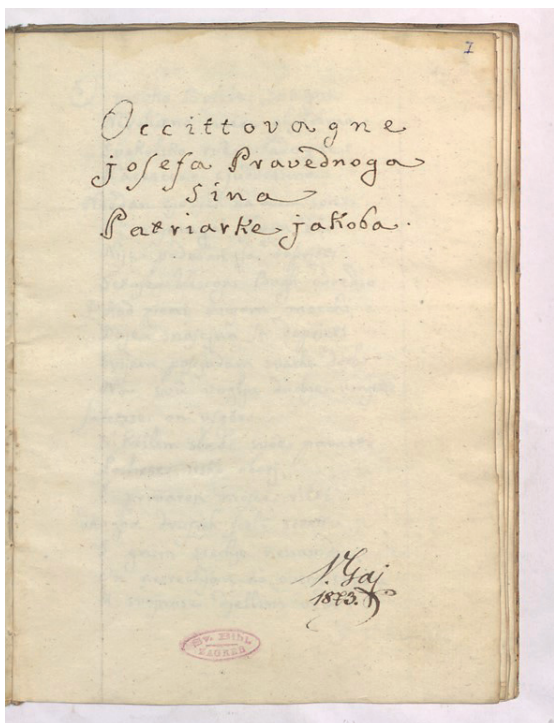 1
Occittovagne
josefa Pravednoga
sina
Patriarke jakoba.
V. Gaj
1875.
ZAGREB